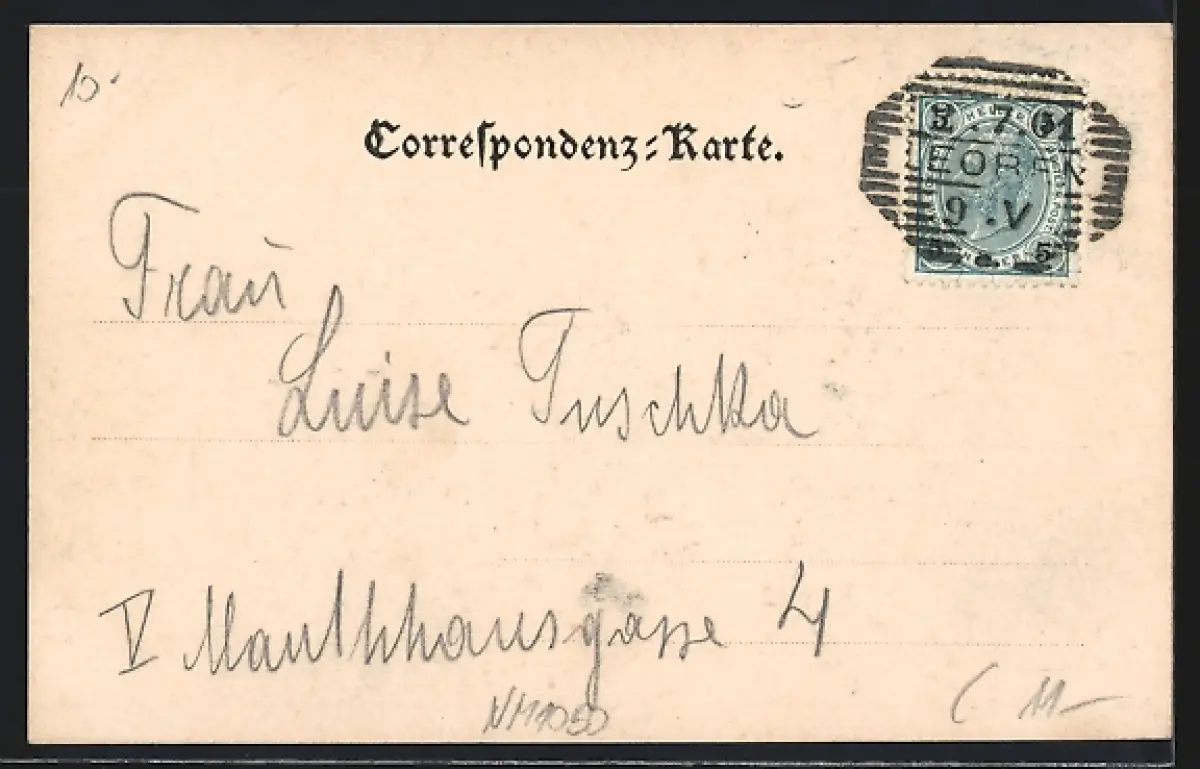 10.-
Correſpondenz-Karte.
5 5
9.V
5
Frau
Luise Tuschka
V Mauthhausgasse 4
NM1050
11-